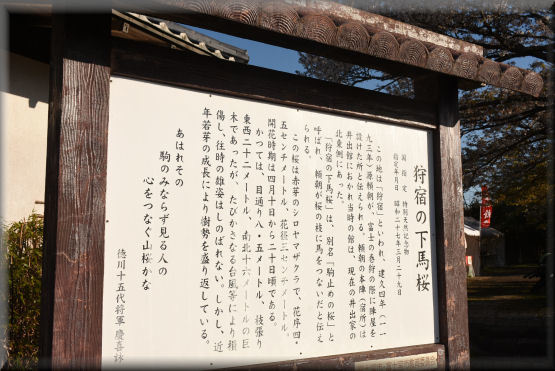 狩宿の下馬桜
国指定 特別天然記念物
指定年月日 昭和二十七年三月二十九日
この地は「狩宿」といわれ、建久四年（一一
九三年）源頼朝が、富士の巻狩の際に陣屋を
設けた所と伝えられる。頼朝の本陣（宿所）は
井出館におかれ当時の館は、現在の井出家の
北東側にあった。
「狩宿の下馬桜」は、別名「駒止めの桜」と
呼ばれ、頼朝が桜の枝に馬をつないだと伝え
られる。
この桜は赤芽のシロヤマザクラで、花序四・
五センチメートル、花径三センチメートル。
開花時期は四月十日から二十日頃である。
かつては、目通り八・五メートル、枝張り
東西二二メートル、南北十六メートルの巨
木であったが、たびかさなる台風等により損
傷し、往時の雄姿はしのばれない。しかし、近
年若芽の成長により樹勢を盛り返している。
あはれその
駒のみならず見る人の
心をつなぐ山桜かな
徳川十五代将軍 慶喜詠